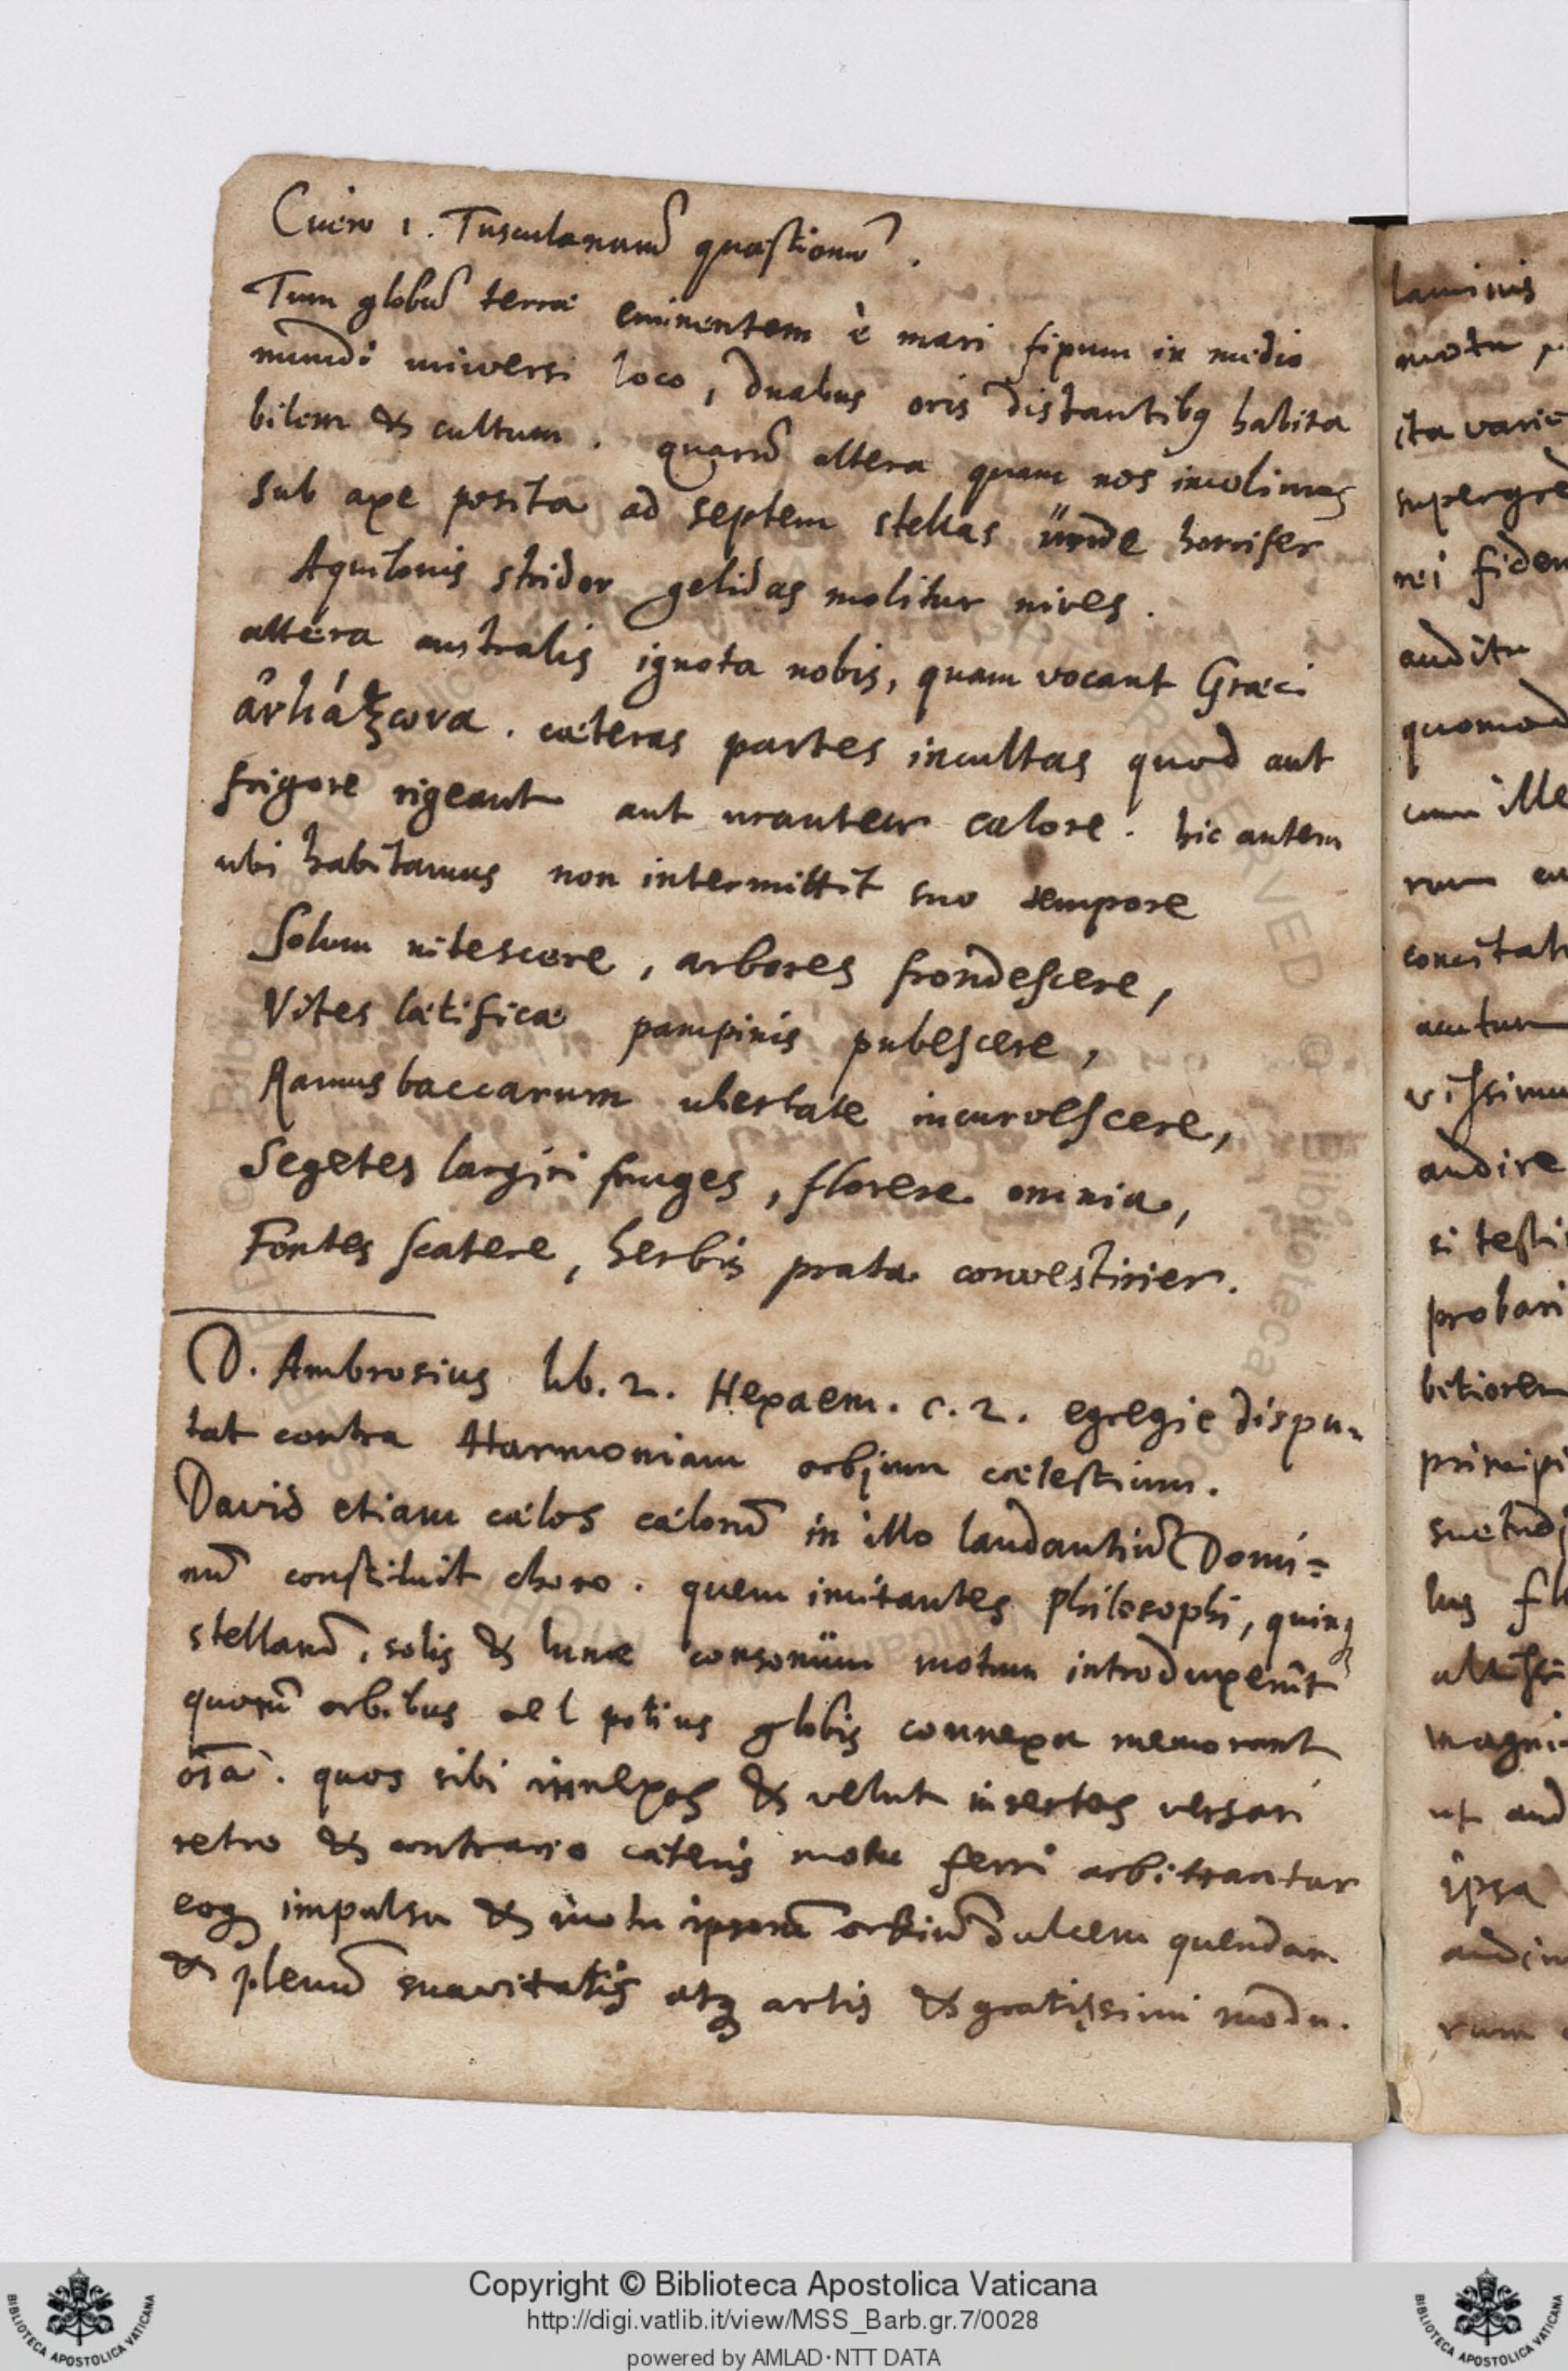 Cicero 1. Tusculanarũ quæstionũ.
Tum globũ terræ eminentem è mari fixum in medio
mundi universi loco, duabus oris distantibꝫ habita
bilem & cultum. quarũ altera quam nos incolimus
sub axe posita ad septem stellas ünde horrifer
Aquilonis stridor gelidas molitur nives.
altera australis ignota nobis, quam vocant Græci
cæteras partes incultas quod aut
frigore rigeant aut urantur calore. hic autem
ubi habitamus non intermittit suo tempore
Solum nitescere, arbores frondescere,
Vites lætificæ pampinis pubescere,
Ramus baccarum ubertate incurvescere,
Segetes largiri fruges, florere omnia,
Fontes scatere, herbis prata convestirier.
D. Ambrosius lib. 2. Hexaem. c. 2. egregie dispu-
tat contra Harmoniam orbium cælestium.
David etiam cælos cælorũ in illo laudantiũ Domi=
nũ constituit choro. quem imitantes philosophi, quinqꝫ
stellarũ, solis & lunæ consonum motum introduxerũt
quorũ orbibus vel potius globis connexa memorant
oĩa. quos sibi innexos & velut insertos versari
retro & contrario cæteris motu ferri arbitrantur
eoqꝫ impulsu & motu ipsorũ orbiũ dulcem quendam
& plenũ suavitatis atqꝫ artis & gratissimi modu.
laminis
motu
ita varie
supergred
rei fidem
auditu
quomod
cum ille
rum
concitat
acutum
vissimu
audire
si testi
probari
bitiorem
principi
suetudi
lus fl
altissi
magni
ut aud
ipsa
audiu
rum
Copyright © Biblioteca Apostolica Vaticana
http://digi.vatlib.it/view/MSS_Barb.gr.7/0028
powered by AMLAD·NTT DATA
BIBLIOTECA APOSTOLICA VATICANA
BIBLIOTECA APOSTOLICA VATICANA